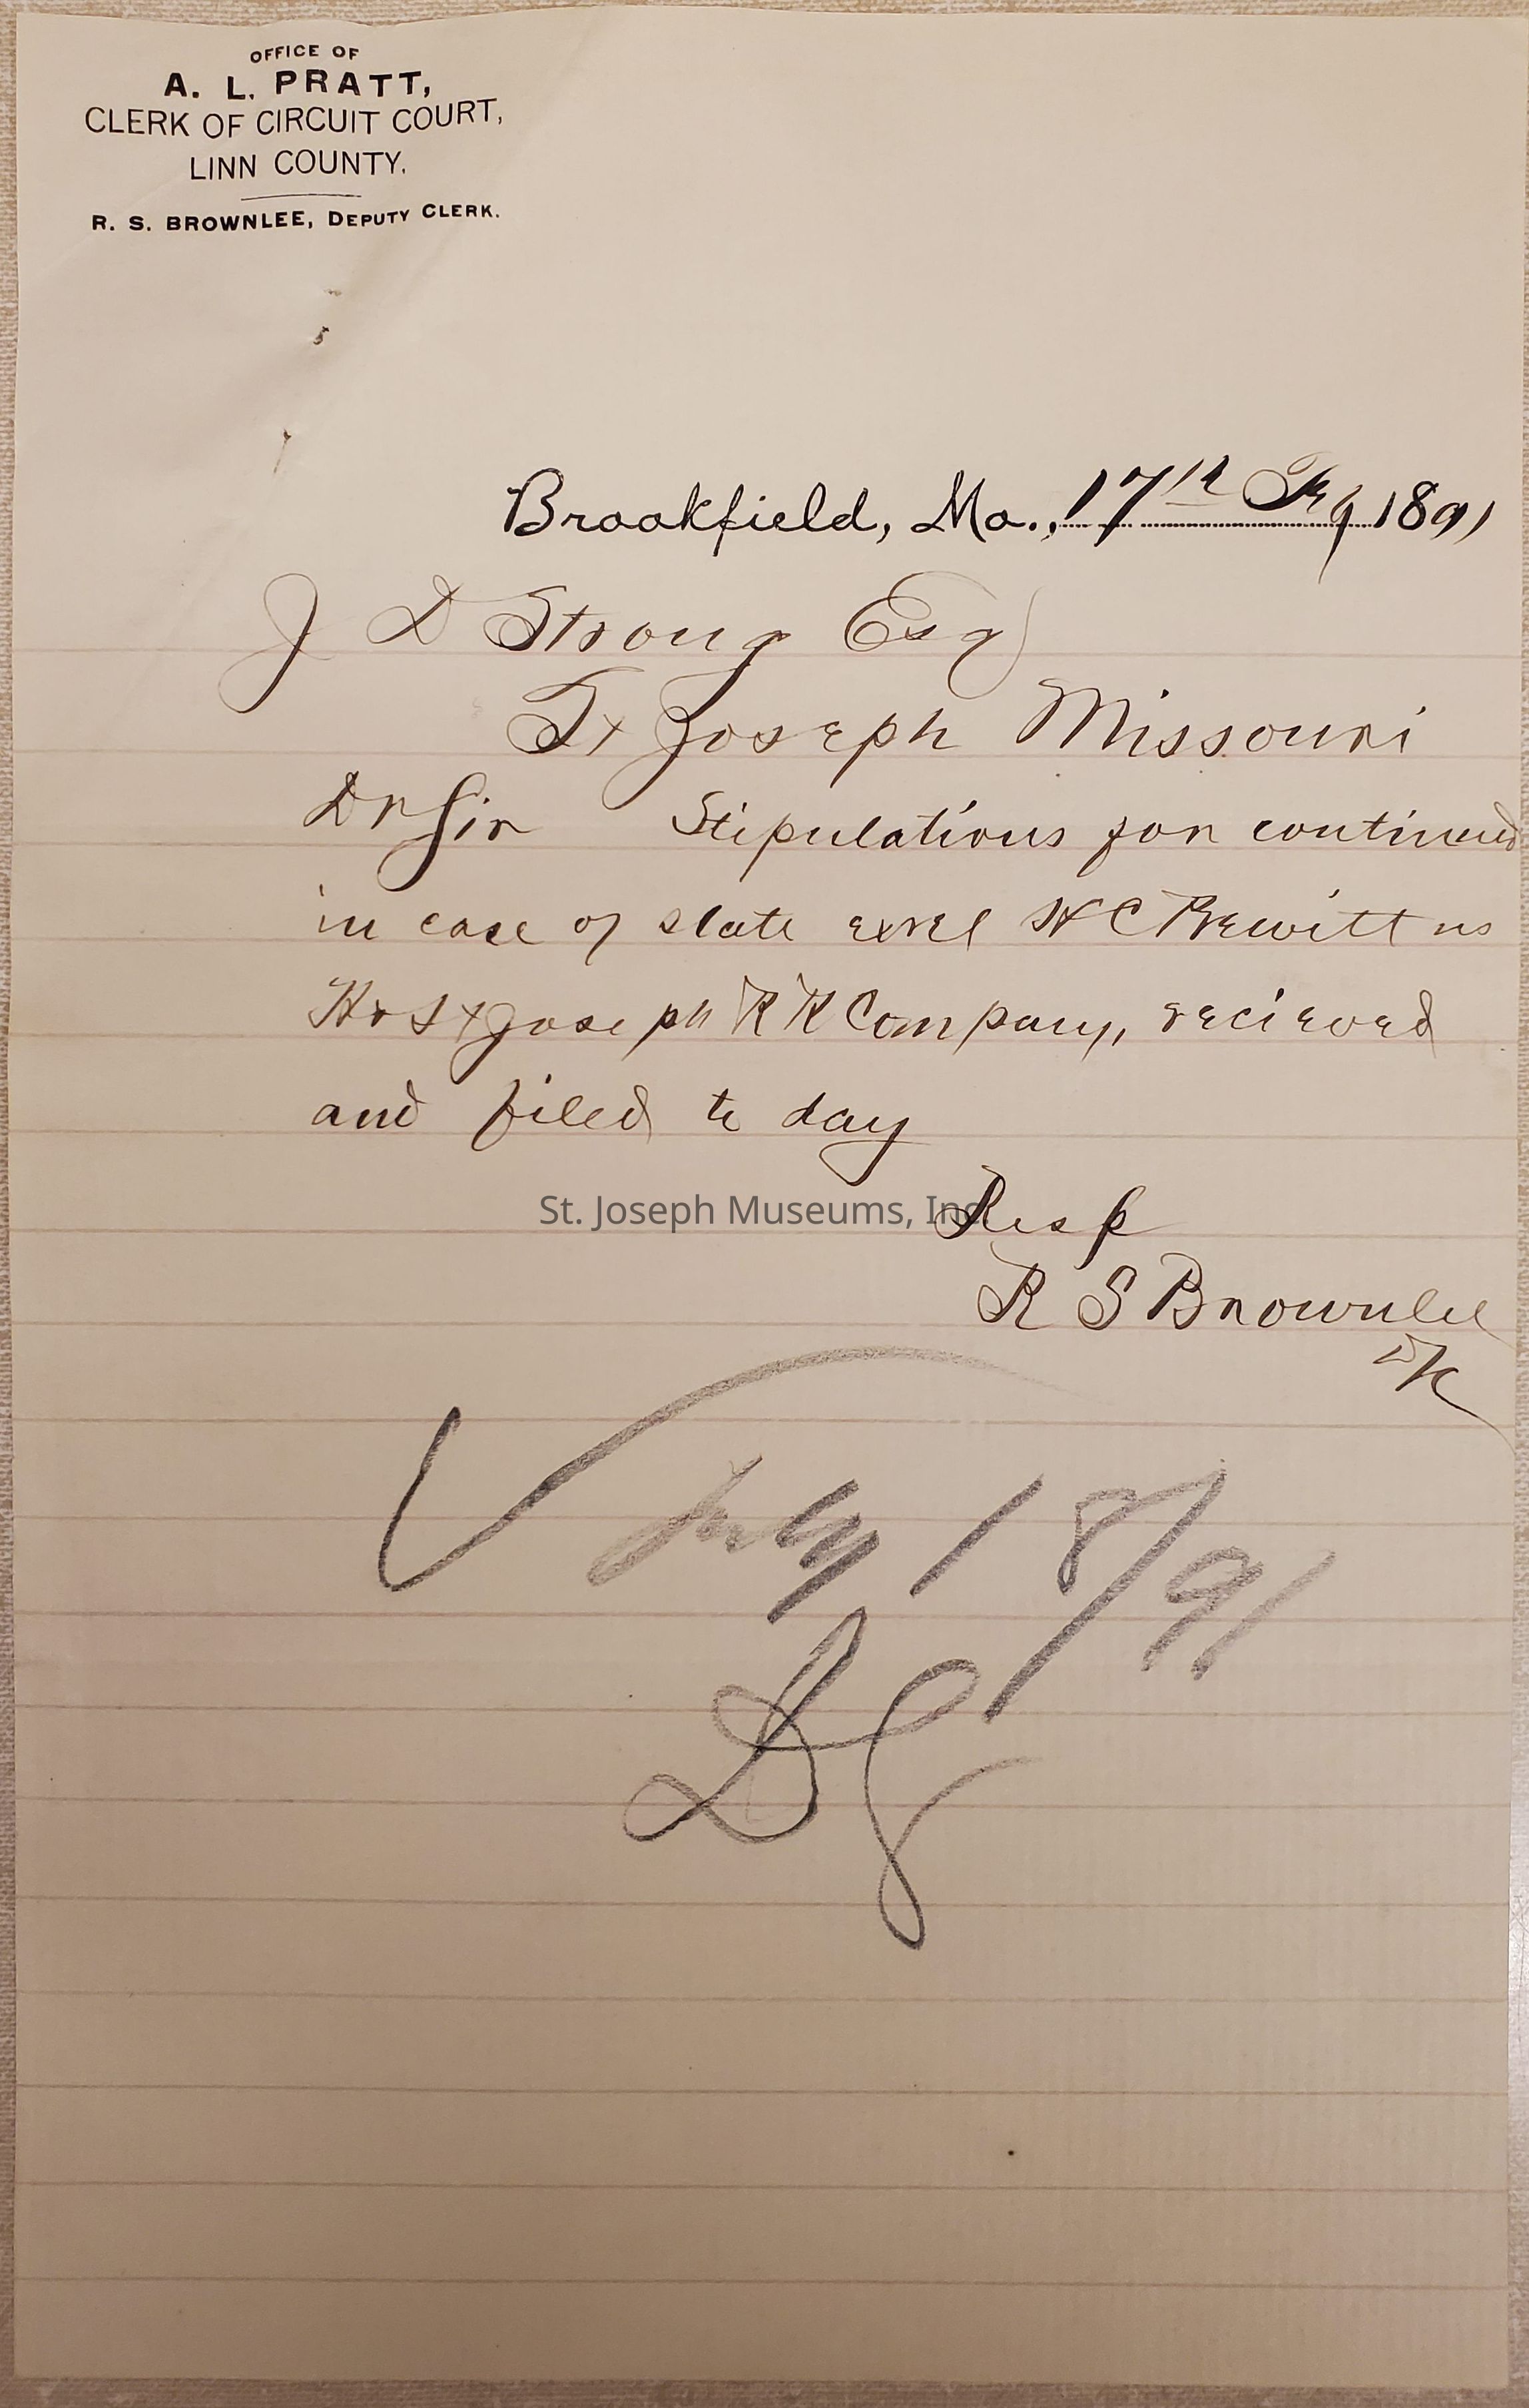 OFFICE OF
A. L. PRATT,
CLERK OF CIRCUIT COURT,
LINN COUNTY.
R. S. BROWNLEE, DEPUTY CLERK.
Brookfield, Mo., 17th 1891
J D Strong Esq
St Joseph Missouri
Dr Sir Stipulations for continued
in case of state exrel H C Prewitt vs
H & St Joseph R R Company, recieved
and filed to day
St. Joseph Museums, Inc.
Resp
R S Brownlee
July 18/91